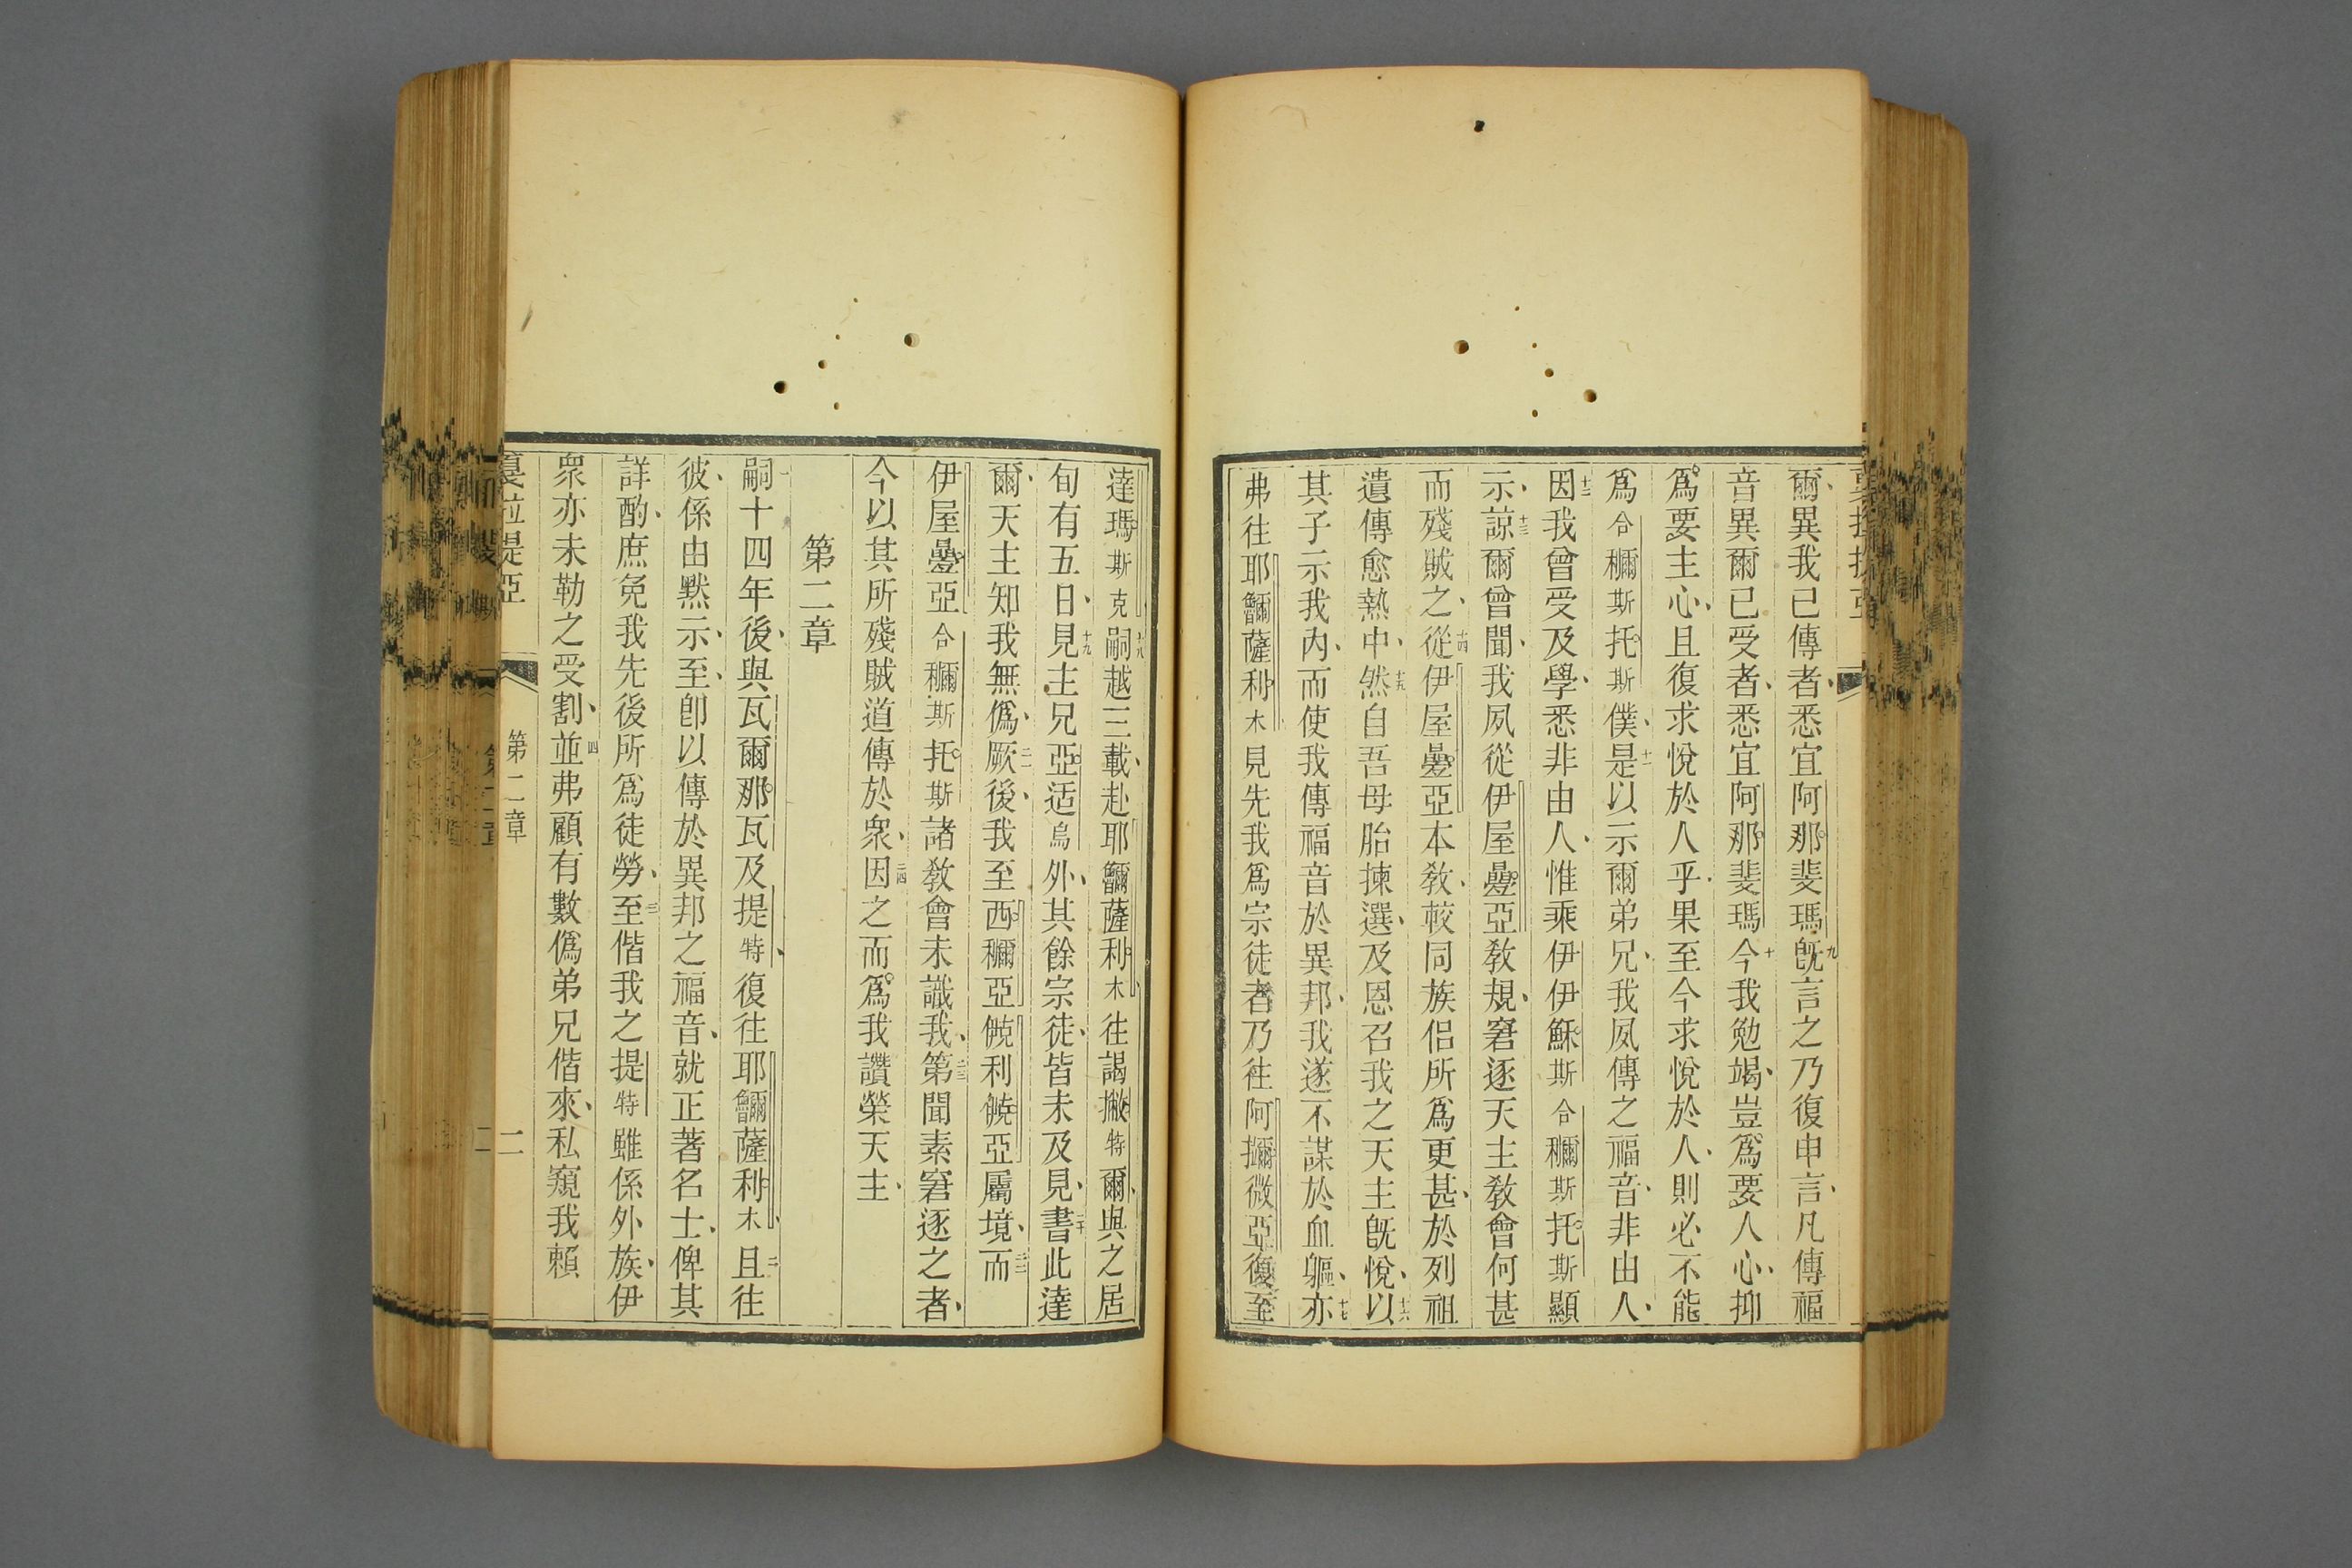 爾、異我已傳者、悉宜阿那斐瑪九旣言之乃復申言、凡傳福
音異爾已受者、悉宜阿那斐瑪十今我勉竭、豈爲要人心、抑
爲要主心、且復求悅於人乎、果至今求悅於人、則必不能
爲合穪斯托斯僕、十一是以示爾弟兄、我夙傳之福音、非由人、
十二因我曾受及學、悉非由人、惟乘伊伊穌斯合穪斯托斯顯
示、十三諒爾曾聞、我夙從伊屋疊亞敎規、窘逐天主敎會何甚
而殘賊之、十四從伊屋疊亞本敎、較同族侶所爲更甚、於列祖
遺傳愈熱中、十五然自吾母胎揀選、及恩召我之天主旣悅、十六以
其子示我內、而使我傳福音於異邦、我遂不謀於血軀、十七亦
弗往耶薩利木見先我爲宗徒者乃往阿微亞復至
達瑪斯克十八嗣越三載、赴耶薩利木、往謁撇特爾、與之居
旬有五日、十九見主兄亞适烏外、其餘宗徒、皆未及見、二十書此達
爾、天主知我無僞、二一厥後、我至西穪亞利亞屬境、二二而
伊屋疊亞合穪斯托斯諸敎會未識我、二三第聞素窘逐之者、
今以其所殘賊道傳於衆、二四因之而爲我讚榮天主、
第二章
一嗣十四年後、與瓦爾那瓦及提特、復往耶薩利木、二且往
彼、係由黙示、至、卽以傳於異邦之福音、就正著名士、俾其
詳酌、庶免我先後所爲徒勞、三至偕我之提特雖係外族、伊
衆亦未勒之受割、四並弗顧有數僞弟兄偕來、私窺我賴
戛拉提亞 第二章 二